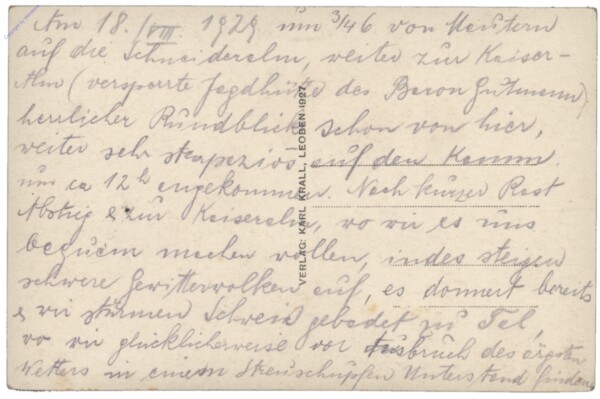 Am 18./VIII. 1929 um 3/4 6 von Mautern
auf die Schneideralm, weiter zur Kaiser-
Alm (versperrte Jagdhütte des Baron Gutmann)
herrlicher Rundblick schon von hier,
weiter sehr strapeziös auf den Kamm.
um ca 12h angekommen. Nach kurzer Rast
Abstieg & zur Kaiseralm, wo wir es uns
bequem machen wollen, indes steigen
schwere Gewitterwolken auf, es donnert bereits
& wir stürmen Schweiß gebadet zu Tal,
wo wir glücklicherweise vor Ausbruch des ärgsten
Wetters in einem Heuschupfen Unterstand finden
VERLAG: KARL KRALL, LEOBEN 1927